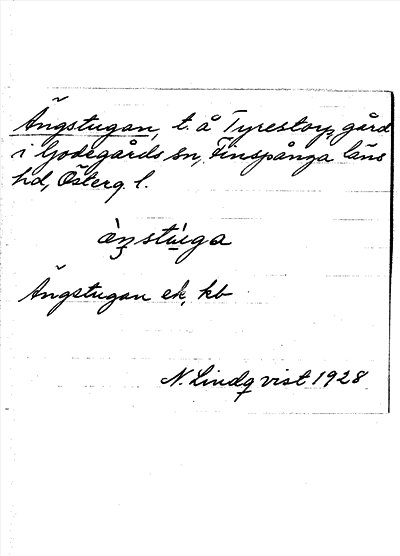 Ängstugan, t. å Tyrestorp gård
i Godegårds sn, Finspånga läns
hd, Österg. l.
æ̀ŋstù̱ga
Ängstugan ek, kb
N. Lindqvist 1928